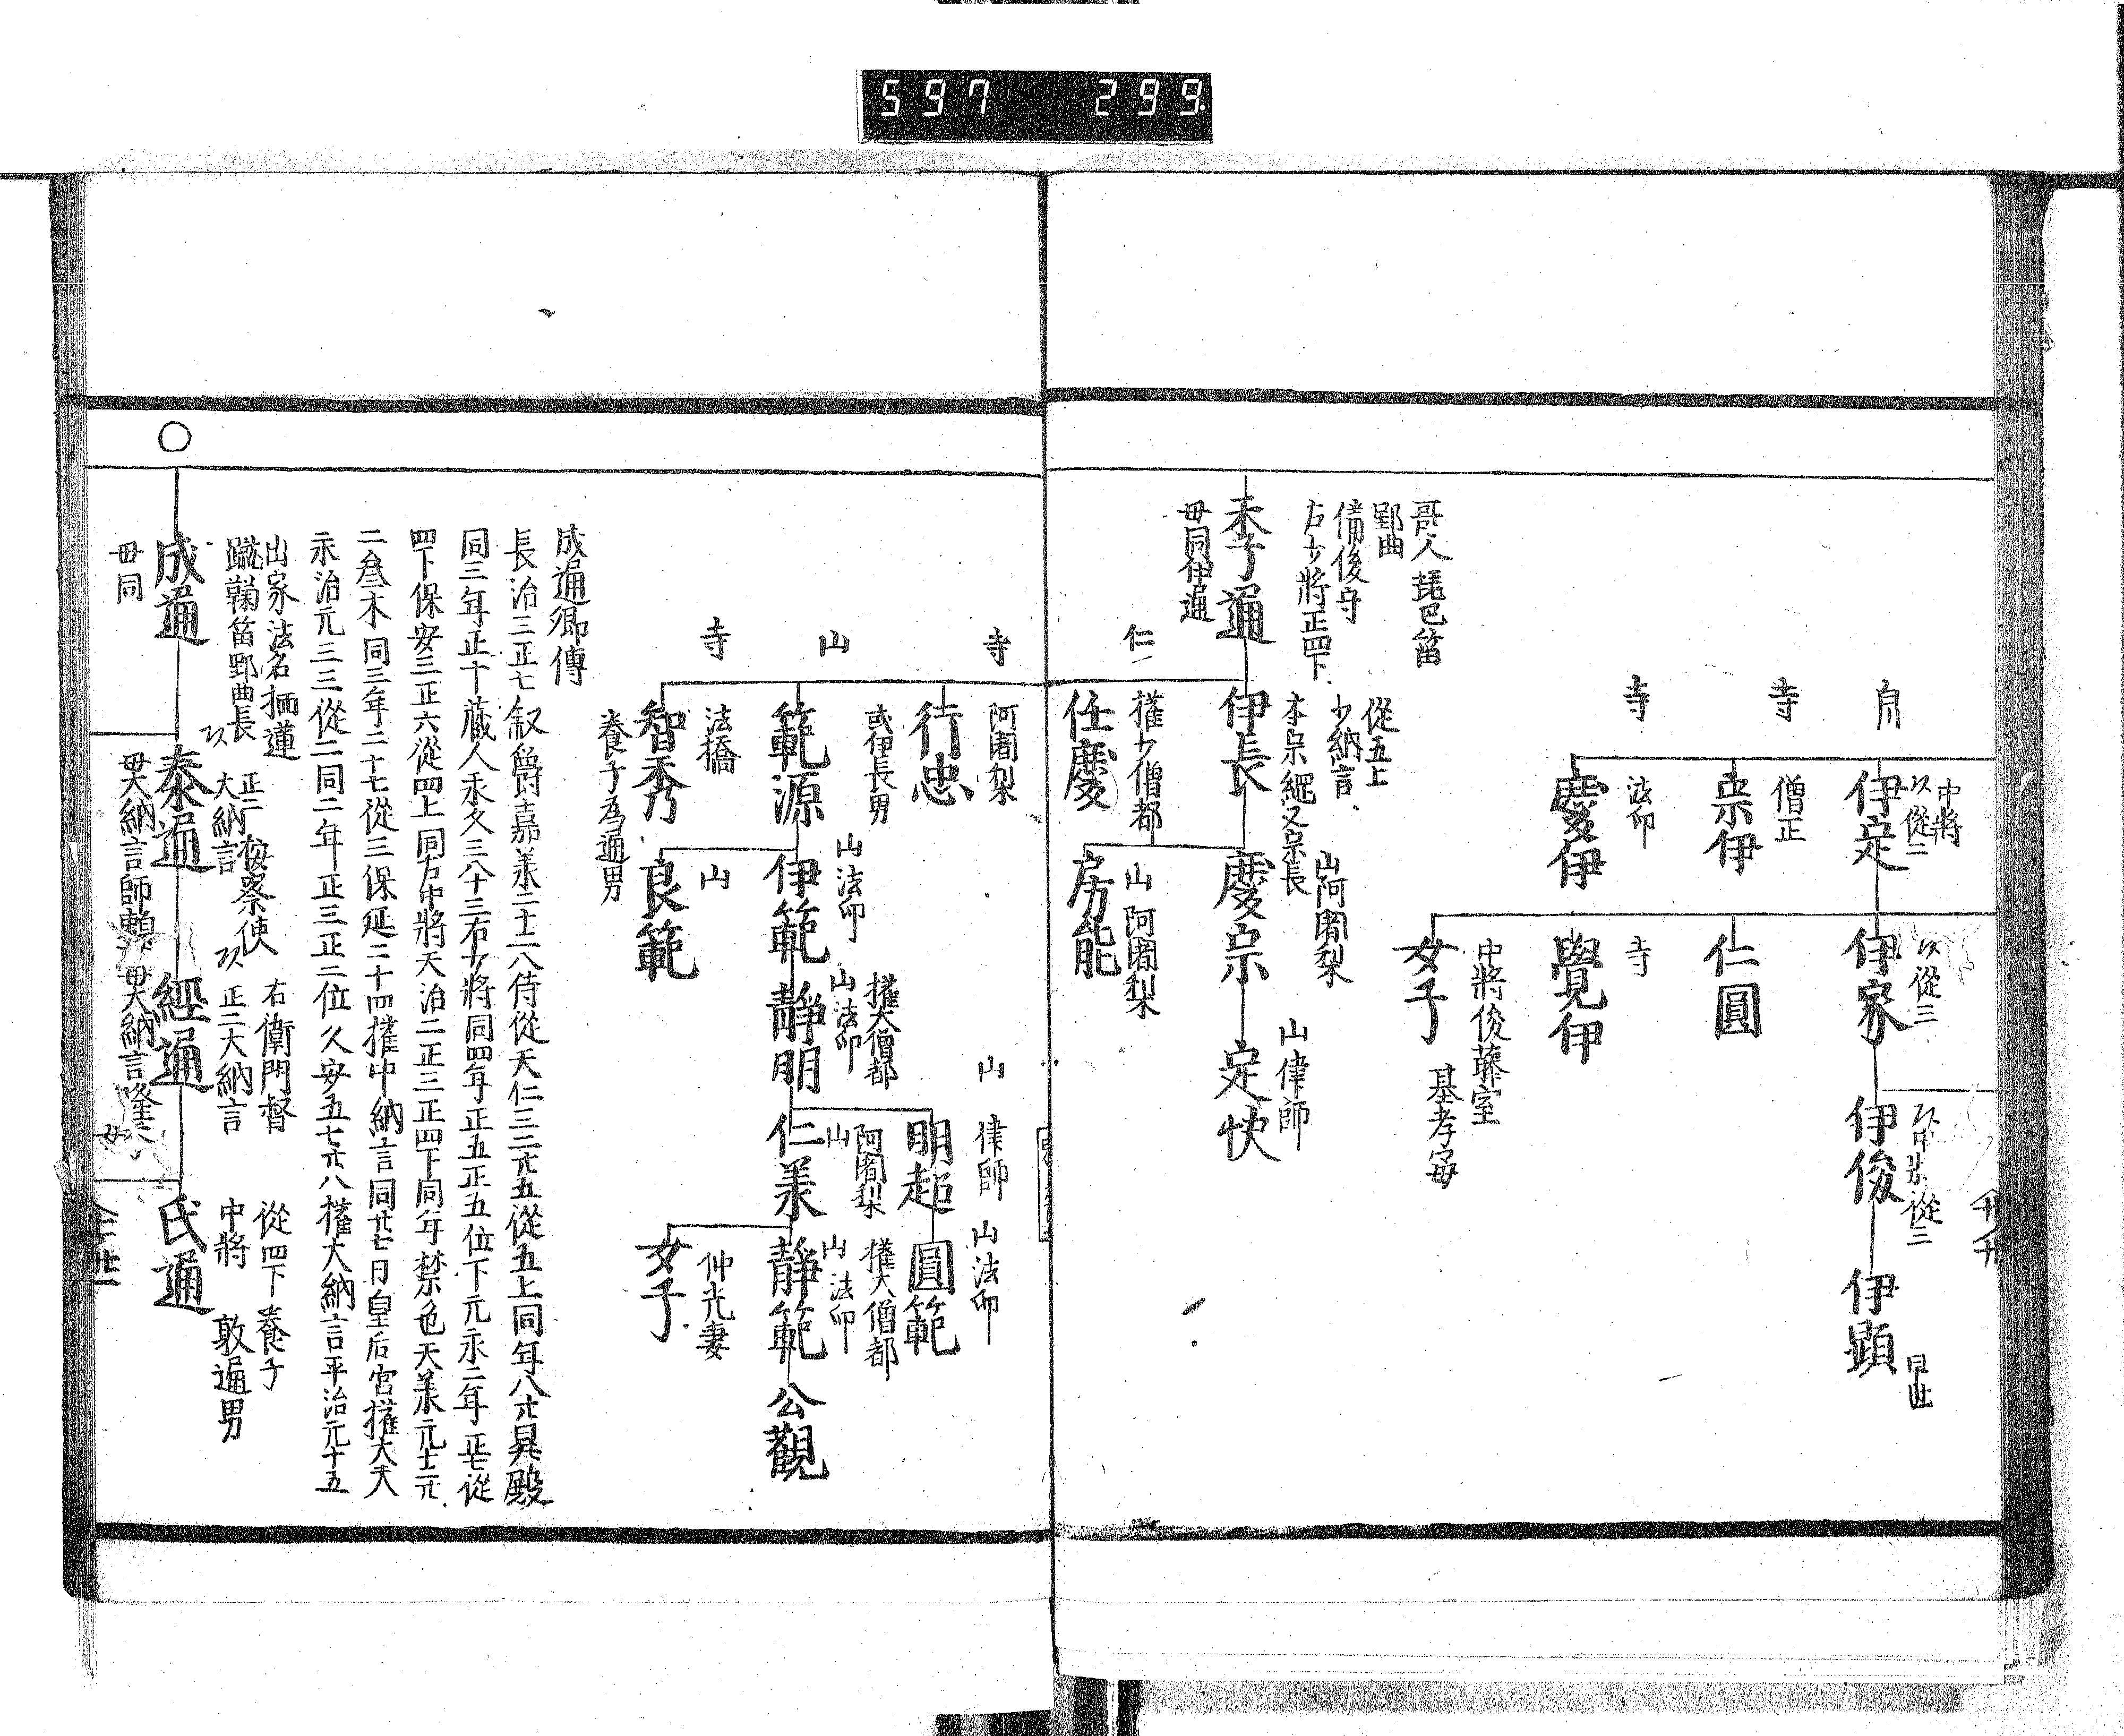 597 299
中將
從二
伊定
從三
伊家
從二
伊俊
早世
伊顕
僧正
寺
宗伊
仁圓
法印
寺
慶伊
寺
覺伊
中將俊藤室
基孝母
女子
哥人 琵巴 笛
郢曲
備後守
右少將正四下
季通
母同伊通
從五上
少納言
本宗縄又宗長
伊長
山阿闍梨
慶宗
山律師
定快
仁
權少僧都
任慶
山阿闍梨
房能
寺
阿闍梨
行忠
或伊長男
山
範源
山法印
伊範
權大僧都
山法印
靜明
山 律師
明超
山法印
圓範
阿闍梨
山
仁兼
權大僧都
山法印
靜範
公觀
仲光妻
女子
寺
法橋
智秀
養子為通男
山
良範
成通卿傳
長治三正七叙爵嘉承二十二八侍從天仁三二廿五從五上同年八廿昇殿
同三年正十藏人永久三八十三右少將同四年正五正五位下元永二年正七從
四下保安三正六從四上同右中將天治二正三正四下同年禁色天承元十二廿
二叄木同三年二十七從三保延二十四權中納言同廿七日皇后宮權大夫
永治元三三從二同二年正三正二位久安五七廿八權大納言平治元十五
出家法名栖蓮
蹴鞠笛郢曲長
成通
母同
正二 按察使
大納言
泰通
母大納言師頼
右衛門督
正二大納言
經通
母大納言隆
從四下養子
中將 敦通男
氏通